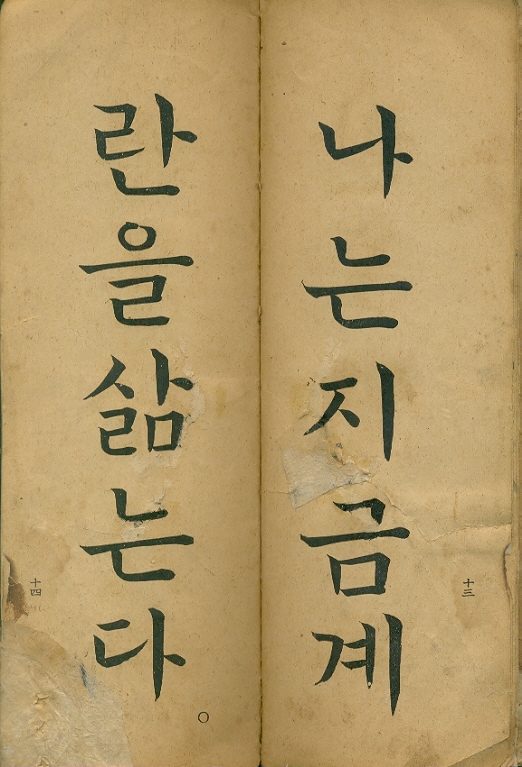 나는지금계
十三
란을삶는다
。
十四